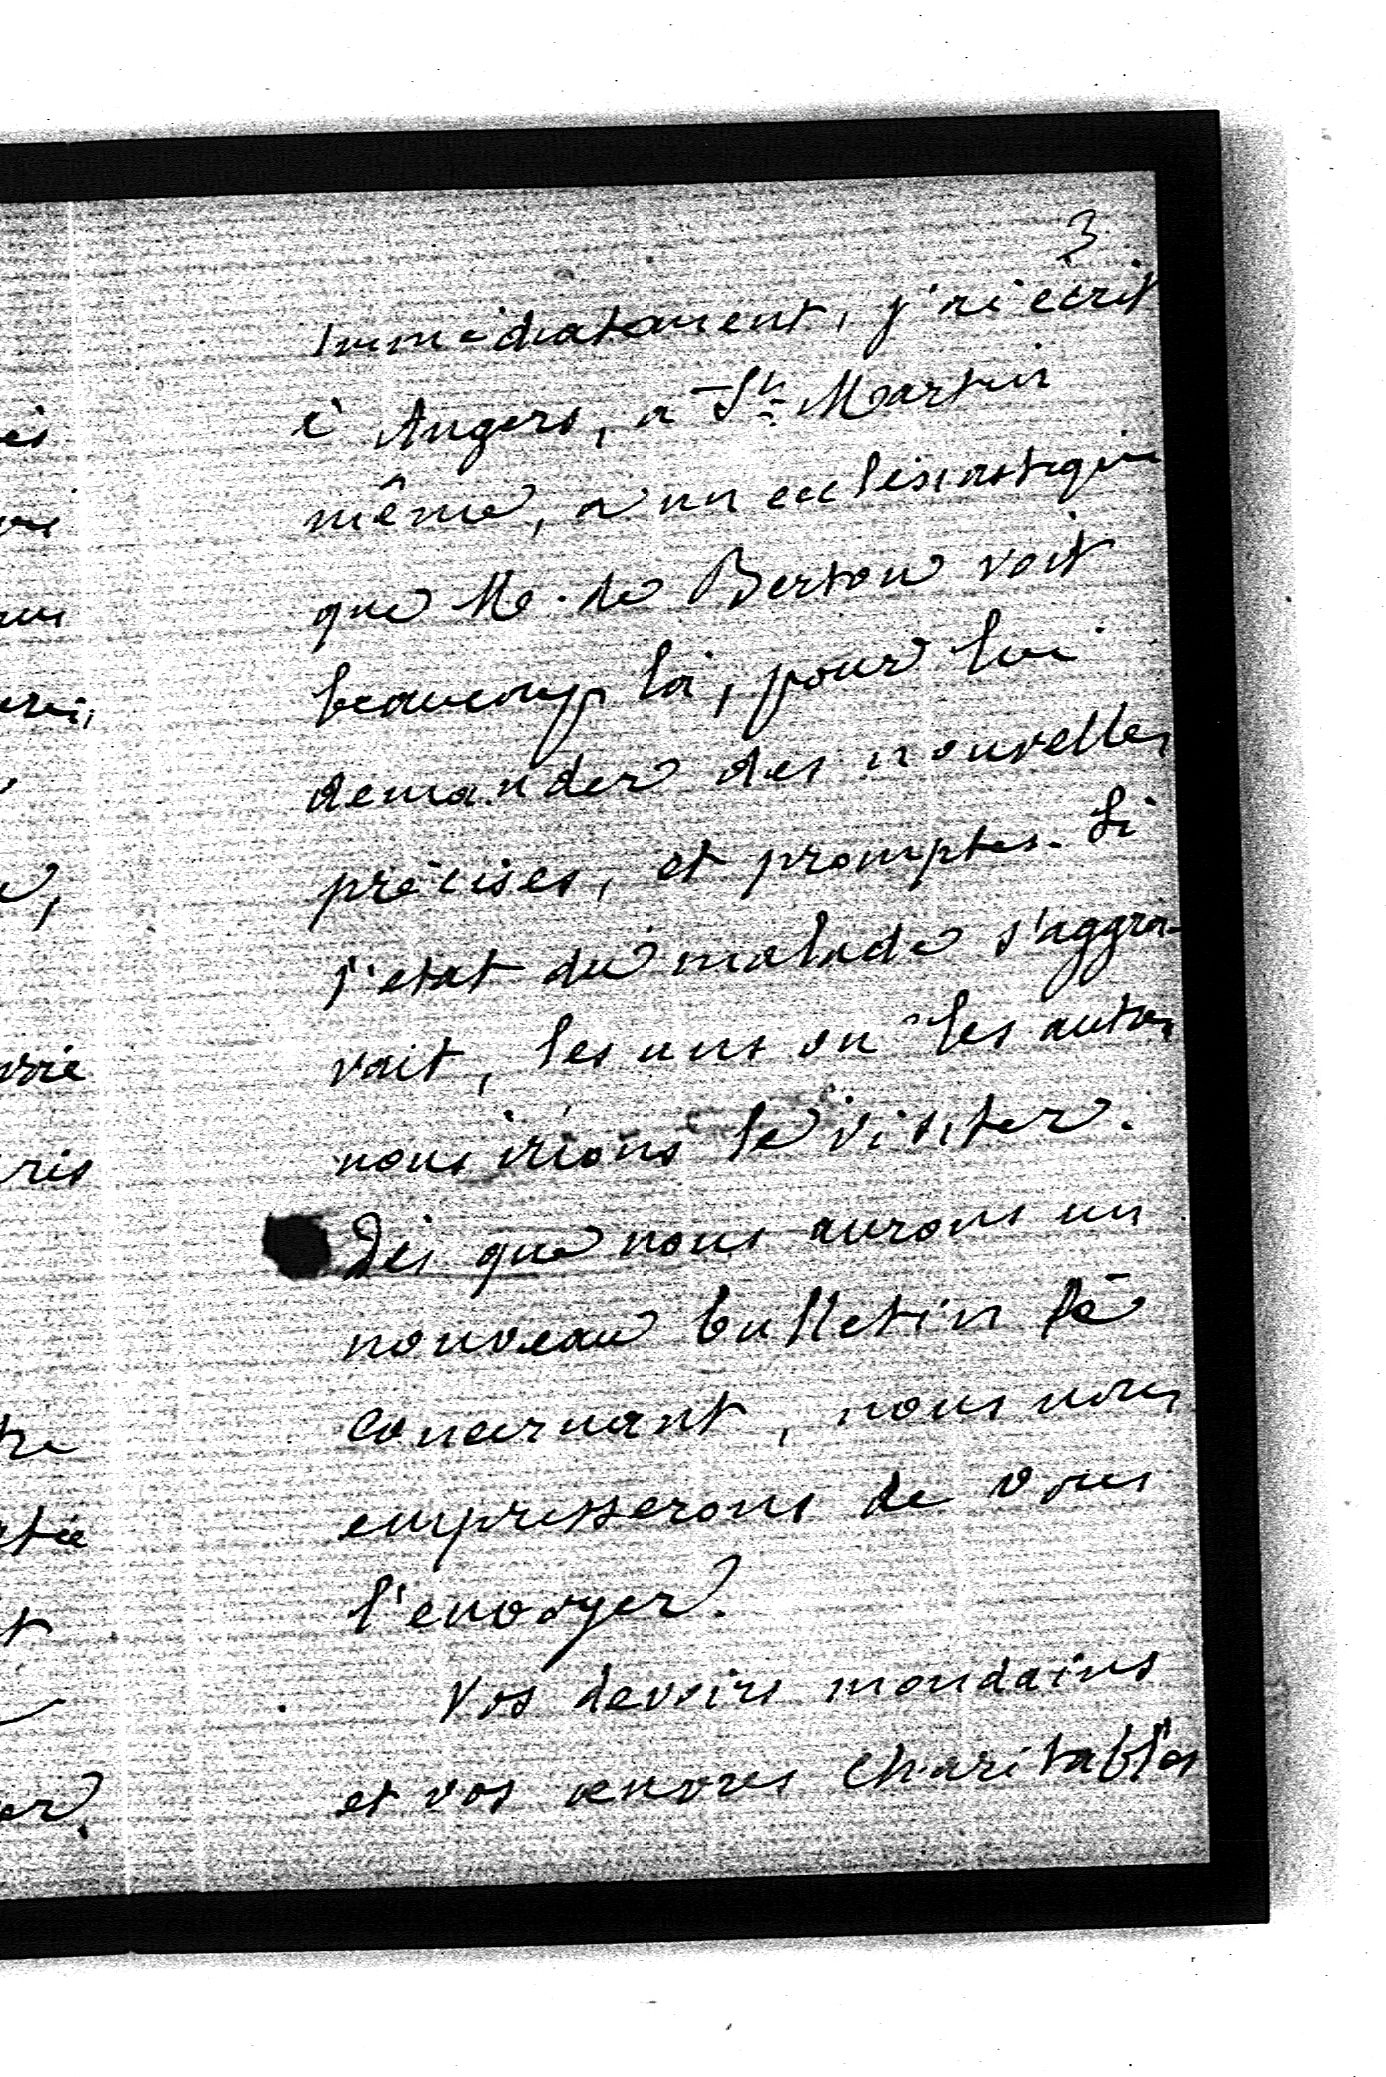 3
immédiatement, j'ai écrit
à Angers, a St Martin
même, a un ecclésiastique
que M. de Bertou voit
beaucoup là, pour lui
demander des nouvelles
précises, et promptes. Si
l'etat du malade s'aggra-
vait, les uns ou les autres
nous irions le visiter.
Dès que nous aurons un
nouveau bulletin le
concernant, nous nous
empresserons de vous
l'envoyer.
Vos devoirs mondains
et vos œuvres charitables